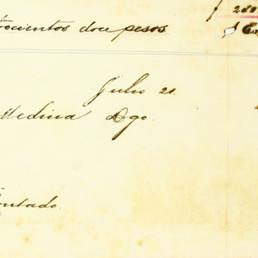 ocientos doce pesos
Julio 21.
Medina Dgo.
ontado